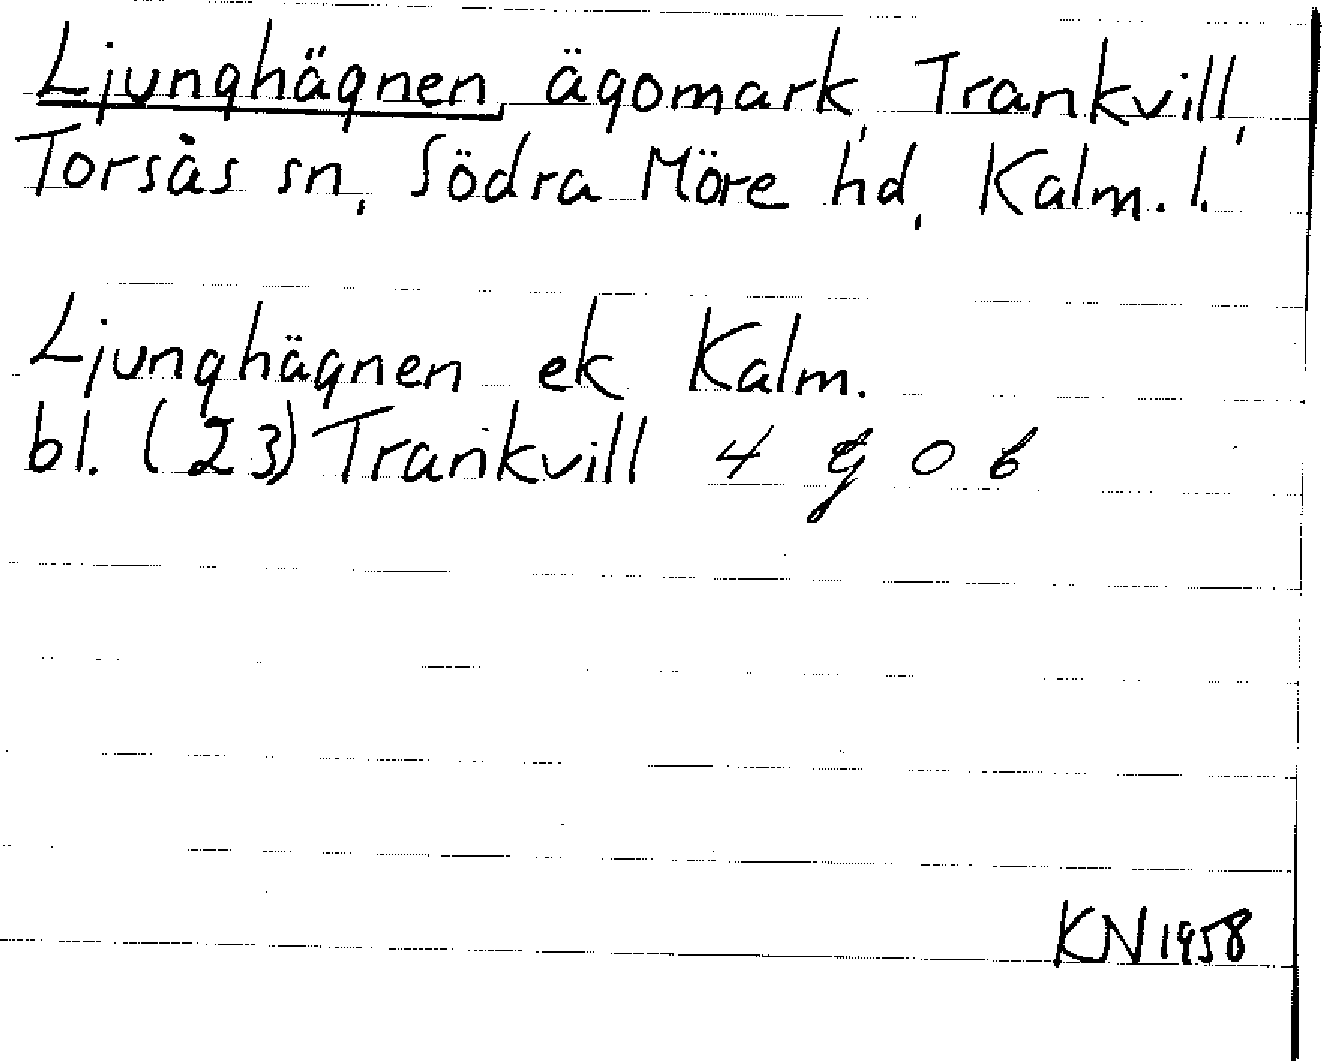 Ljunghägnen, ägomark, Trankvill,
Torsås sn, Södra Möre hd, Kalm. l.
Ljunghägnen ek Kalm.
bl. (23) Trankvill 4 g 0 b
KN 1958